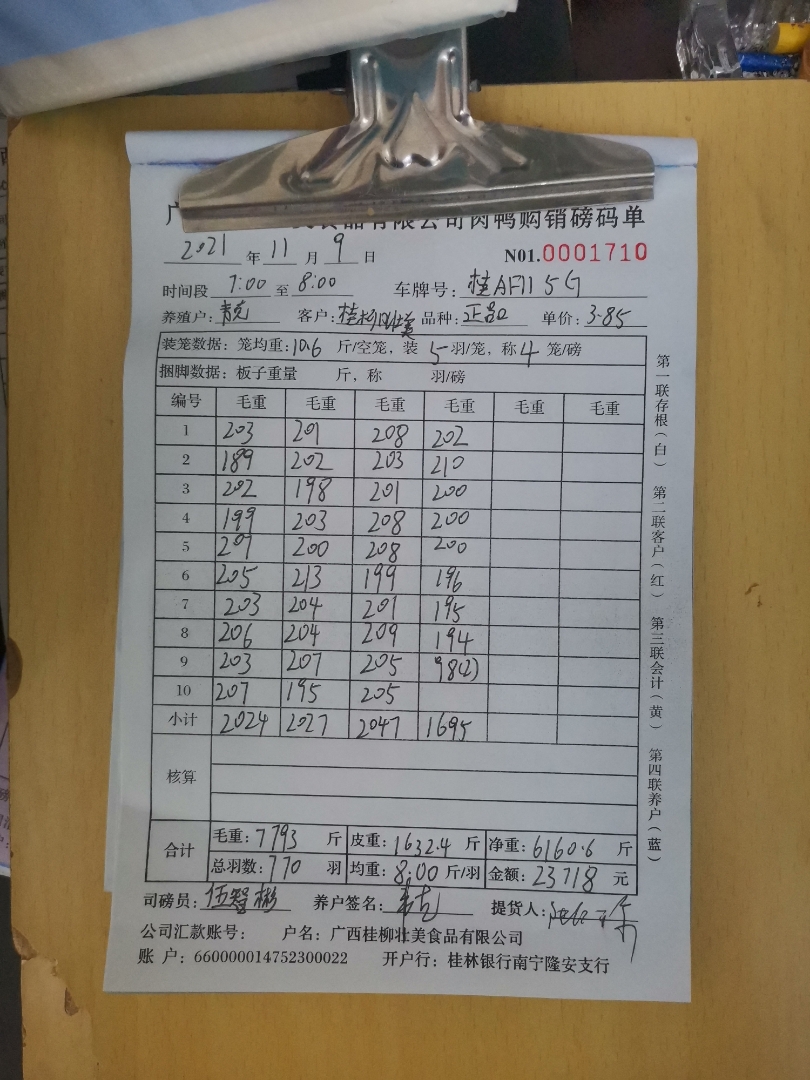 食品有限公司肉鸭购销磅码单
2021 年 11 月 9 日 N01.0001710
时间段 7:00 至 8:00 车牌号: 桂AF115G
养殖户: 客户: 桂柳壮美 品种: 正品 单价: 3.85
装笼数据: 笼均重: 10.6 斤/空笼, 装 5 羽/笼, 称 4 笼/磅
捆脚数据: 板子重量 斤, 称 羽/磅
编号 毛重 毛重 毛重 毛重 毛重 毛重
1 203 201 208 202
2 189 202 203 210
3 202 198 201 200
4 199 203 208 200
5 207 200 208 200
6 205 213 199 196
7 203 204 201 195
8 206 204 209 194
9 203 207 205 98(2)
10 207 195 205
小计 2024 2027 2047 1695
核算
合计 毛重: 7793 斤 皮重: 1632.4 斤 净重: 6160.6 斤
总羽数: 770 羽 均重: 8.00 斤/羽 金额: 23718 元
司磅员: 伍智彬 养户签名: 提货人:
公司汇款账号: 户名: 广西桂柳壮美食品有限公司
账 户: 660000014752300022 开户行: 桂林银行南宁隆安支行
第一联存根(白) 第二联客户(红) 第三联会计(黄) 第四联养户(蓝)